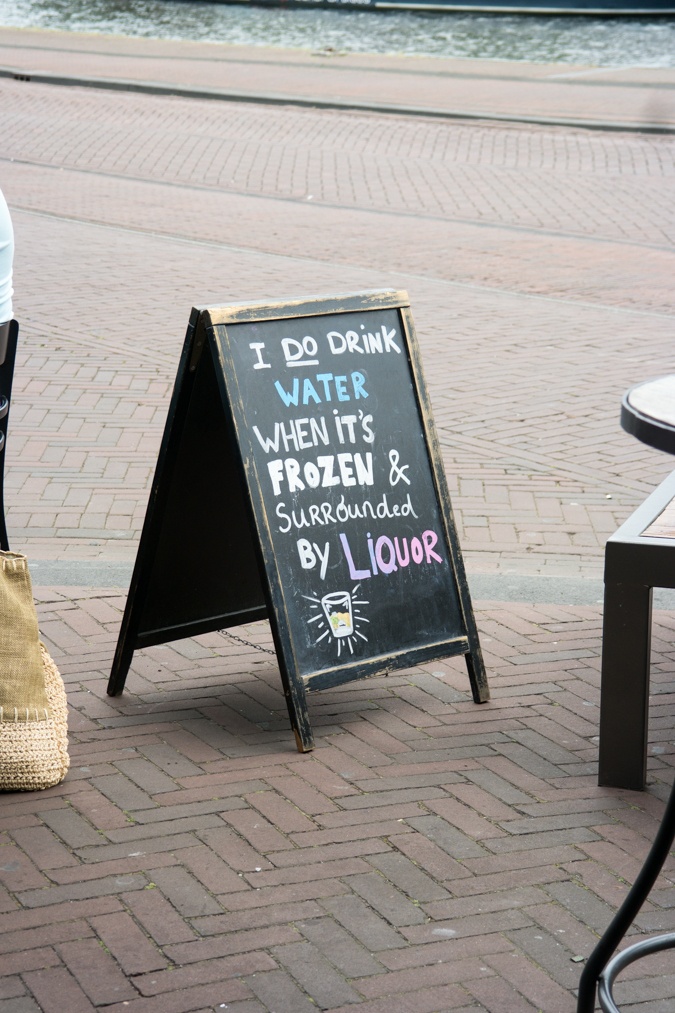 I DO DRINK
WATER
WHEN iT'S
FROZEN &
SURROUnded
BY LiQUOR